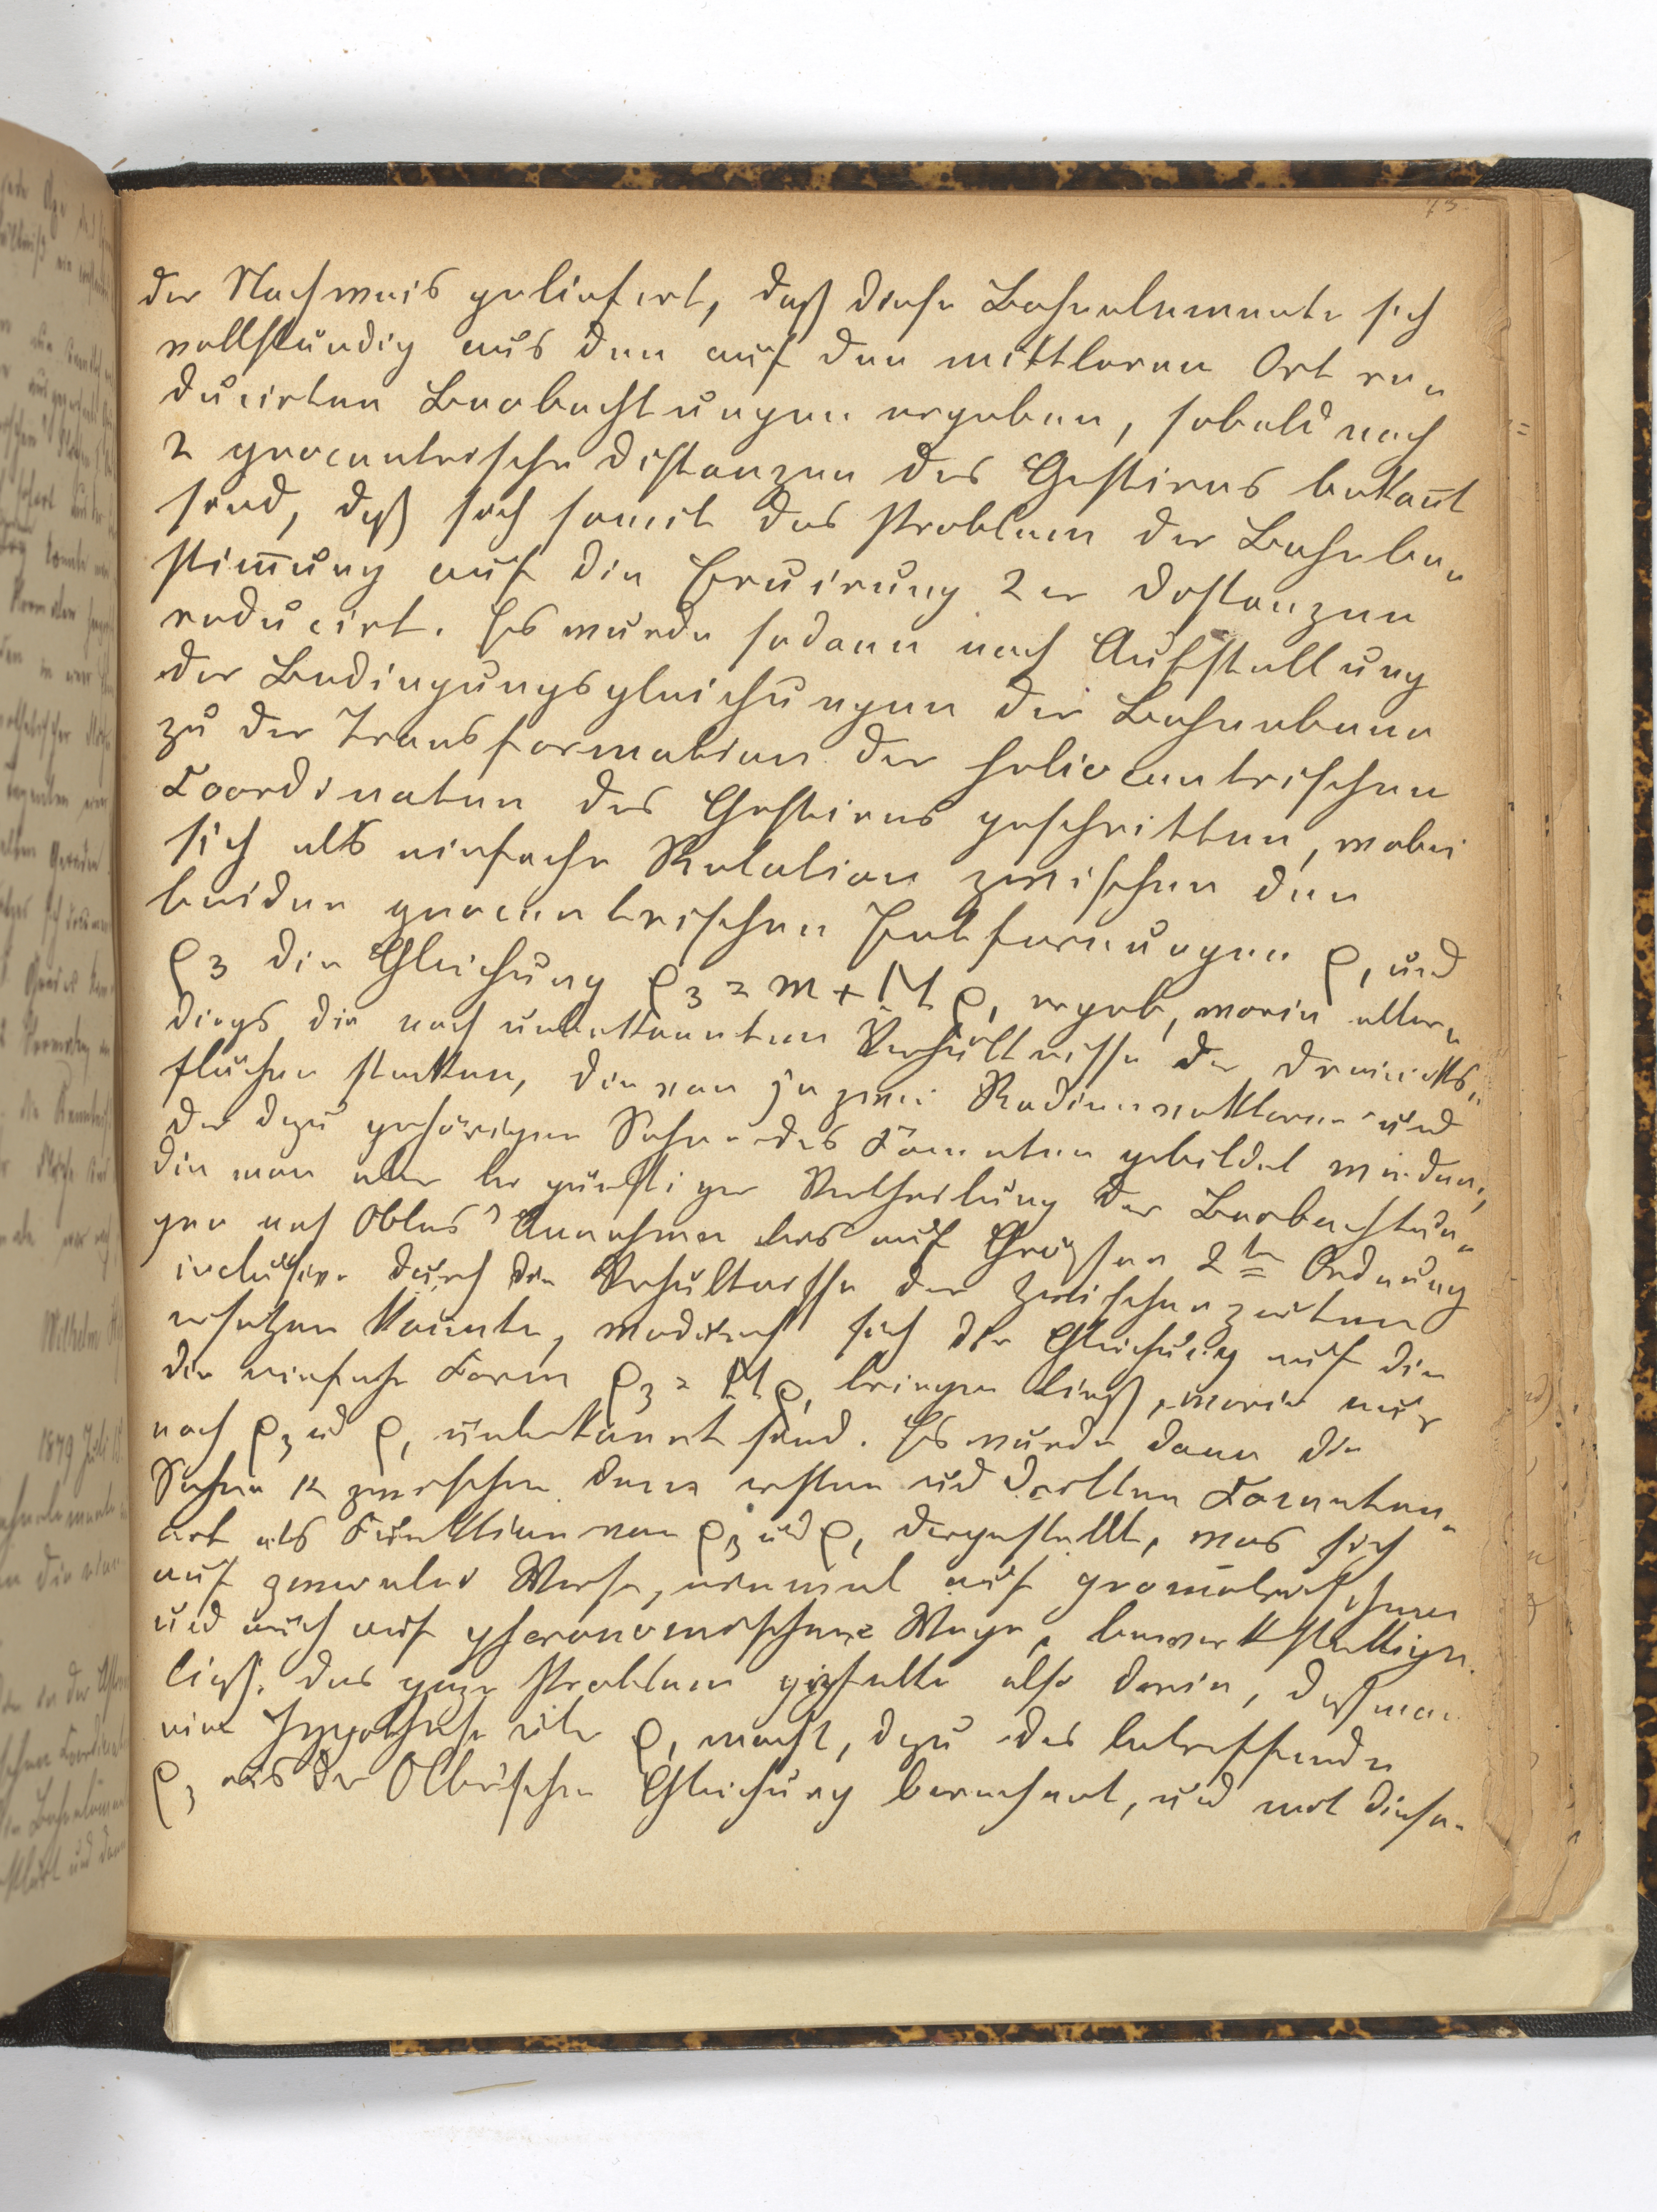 73.
der Nachweis geliefert, daß diese Bahnelemente sich
vollständig aus den auf den mittleren Ort re„
ducirten Beobachtungen ergeben, sobald noch
2 geocentrische Distanzen des Gestirns bekañt
sind, daß sich somit das Problem der Bahnbe„
stim̅ung auf die Eruirung 2er Distanzen
reducirt. Es wurde sodann nach Aufstellung
der Bedingungsgleichungen der Bahnebene
zu der Transformation der heliocentrischen
Coordinaten des Gestirns geschritten, wobei
sich als einfache Relation zwischen den
beiden geocentrischen Entfernungen ρ, und
ρ3 die Gleichung ρ3 = m + M ρ, ergab, worin aller„
dings die noch unbekannten Verhältnisse der Dreiecks„
flächen stecken, die von je zwei Radienvektoren und
der dazu gehörigen Sehne des Cometen gebildet würden,
die man aber bei günstiger Vertheilung der Beobachtun„
gen nach Olbers' Annahme bis auf Größen 2ter Ordnung
inclusive durch die Verhältnisse der Zwischenzeiten
ersetzen konnte, wodurch sich die Gleichung auf die
die einfache Form ρ3 = M ρ, bringen ließ, worin nur
noch ρ3 ud ρ, unbekannt sind. Es wurde dann die
Sehne k zwischen dem ersten und dritten Cometen„
ort als Funktion von ρ3 ud ρ, dargestellt, was sich
auf zweierlei Weise, einmal auf geometrischem
und auch auf phoronomischem Wege, bewerkstelligen
ließ. Das ganze Problem gipfelte also darin, daß man
eine Hypothese über ρ, macht, dazu das betreffende
ρ3 aus der Olbers'schen Gleichung berechnet, und mit diese„